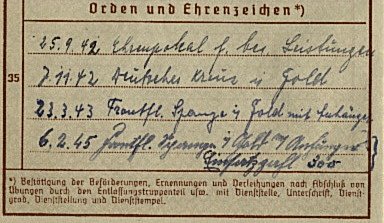 Orden und Ehrenzeichen*)
25.9.42 Ehrenpokal f. bes. Leistungen
35
7.11.42 Deutsches Kreuz i. Gold
23.3.43 Frontfl. Spange i. Gold mit Anhänger
6.2.45 Frontfl. Spange i. Gold Anhänger
Einsatzzahl 300
*) Bestätigung der Beförderungen, Ernennungen und Verleihungen nach Abschluß von
Übungen durch den Entlassungstruppenteil usw. mit Dienststelle, Unterschrift, Dienst-
grad, Dienststellung und Dienststempel.